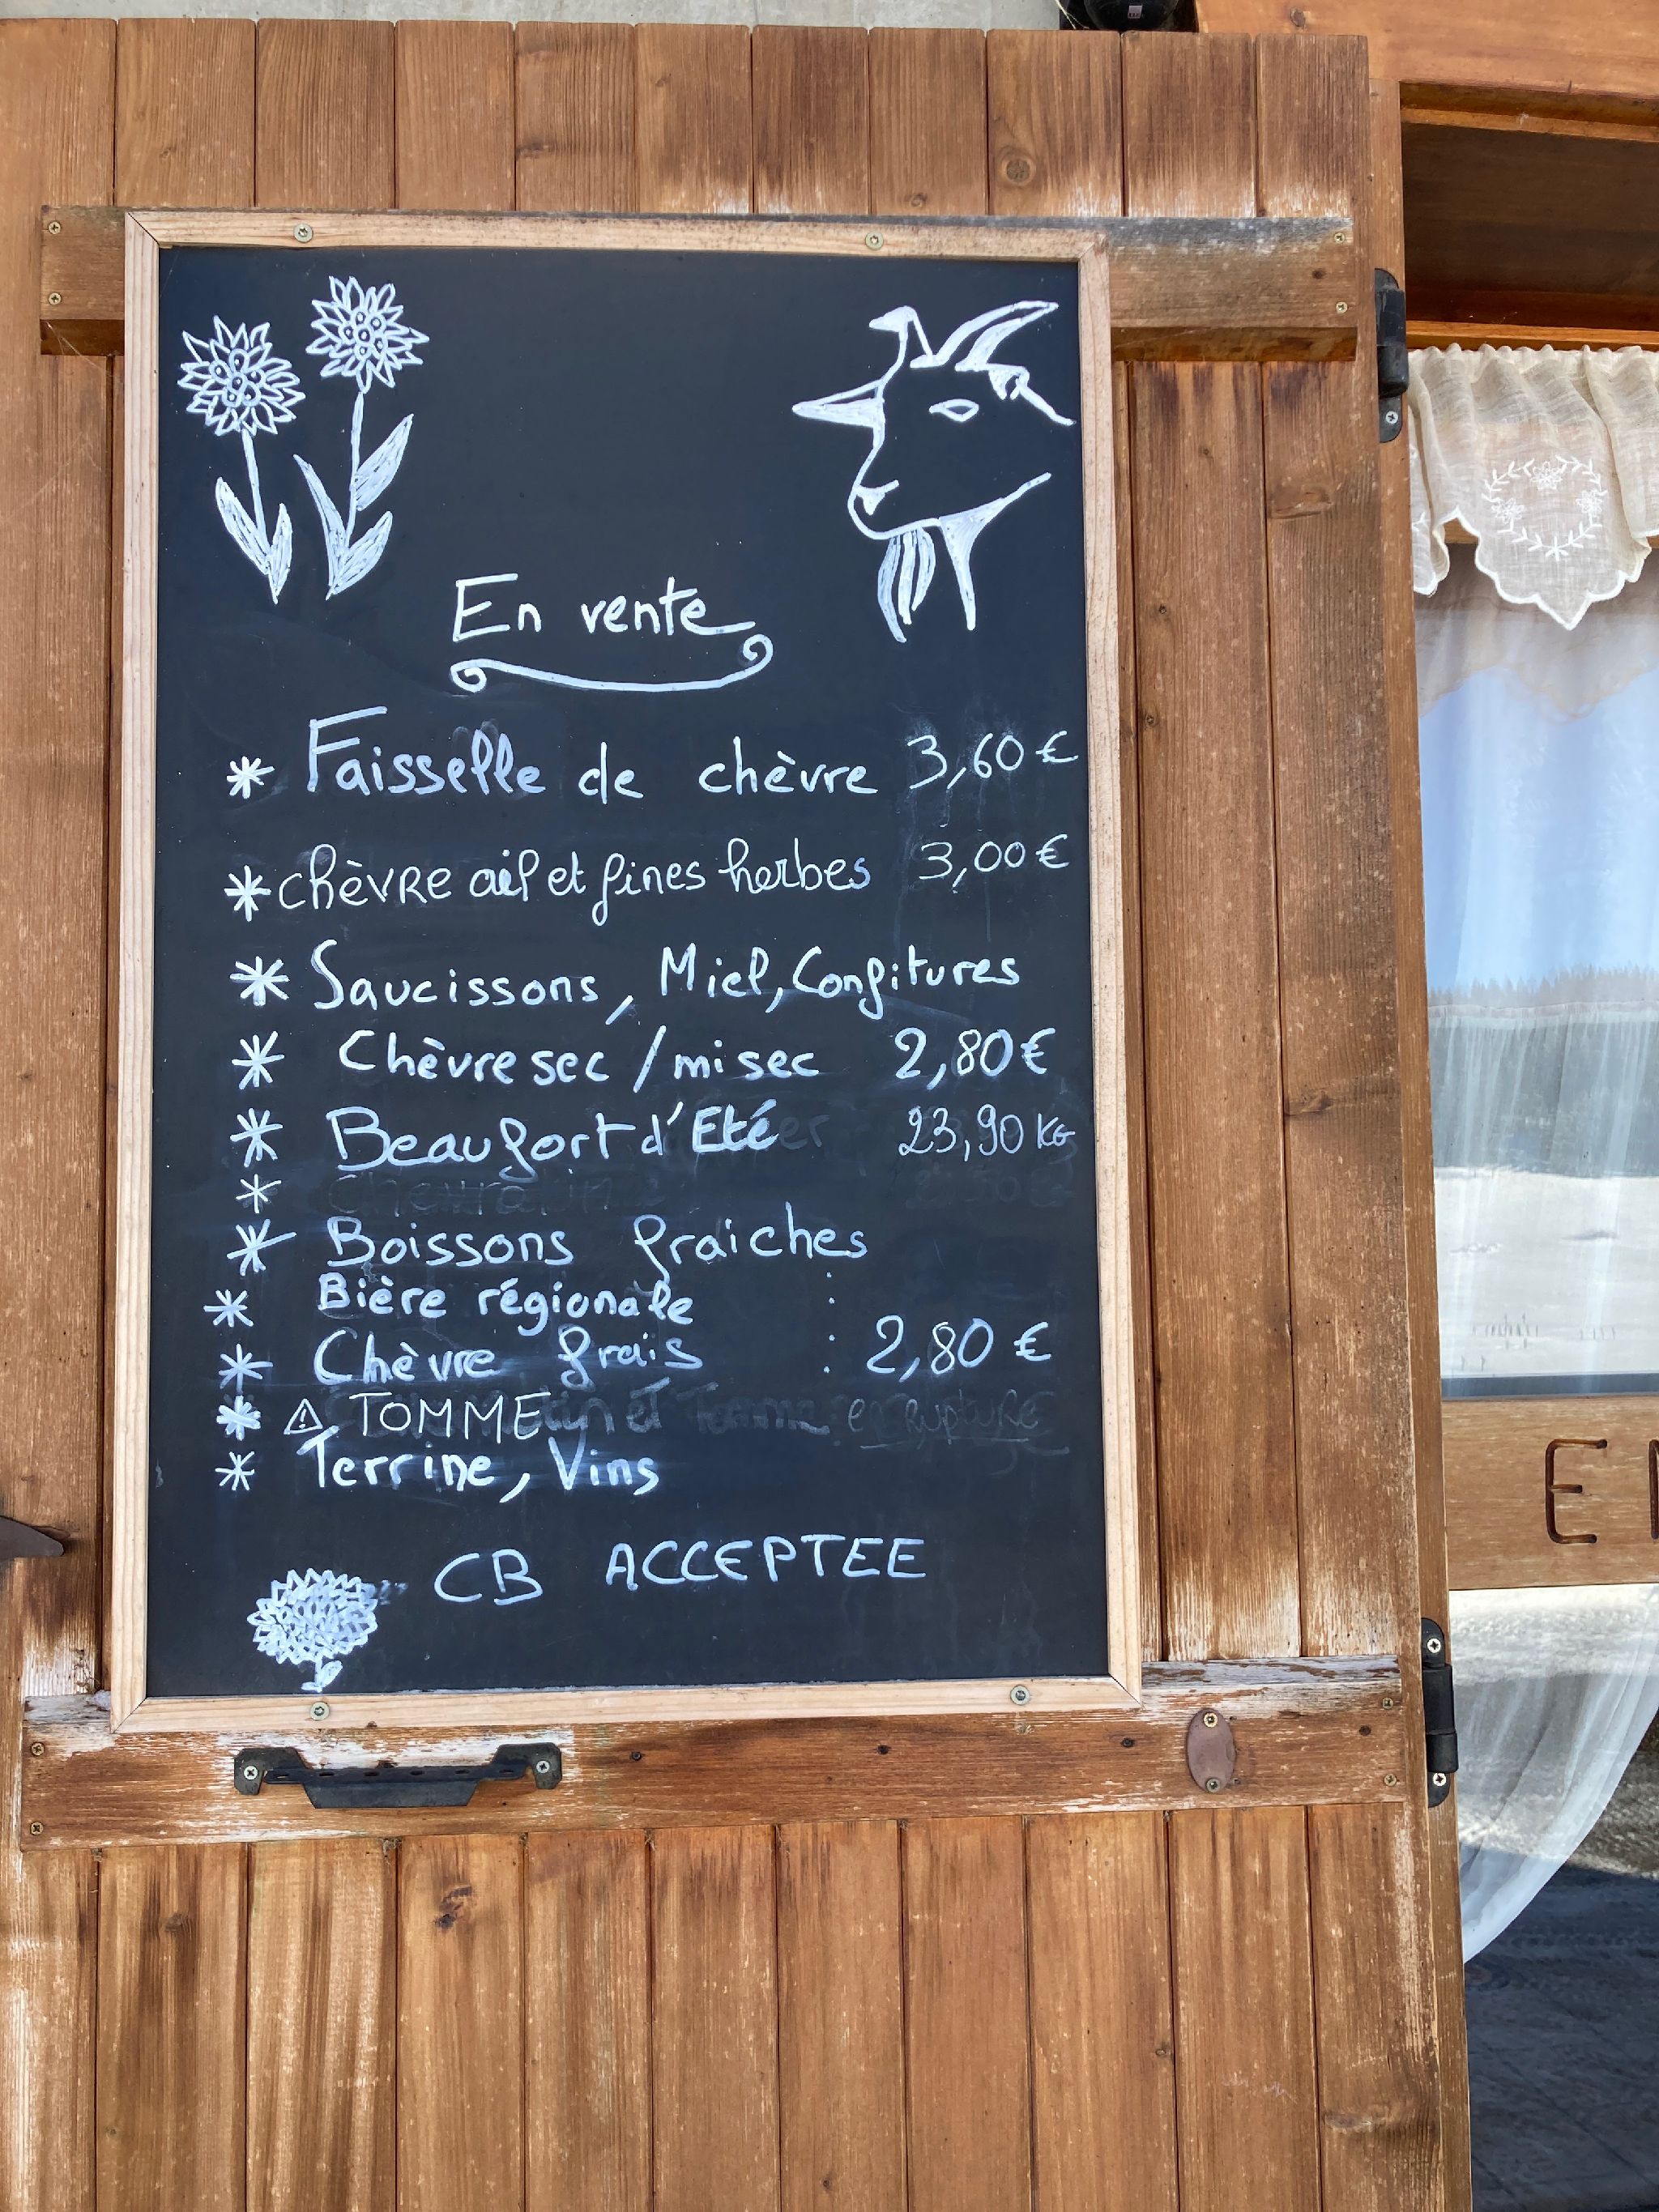 En vente
* Faisselle de chèvre 3,60 €
* chèvre ail et fines herbes 3,00 €
* Saucissons, Miel, Confitures
* Chèvre sec / mi sec 2,80 €
* Beaufort d'Eté 23,90 KG
*
* Boissons fraiches
* Bière régionale :
* Chèvre frais : 2,80 €
* ⚠ TOMME et Tomme en rupture
* Terrine, Vins
CB ACCEPTEE
E